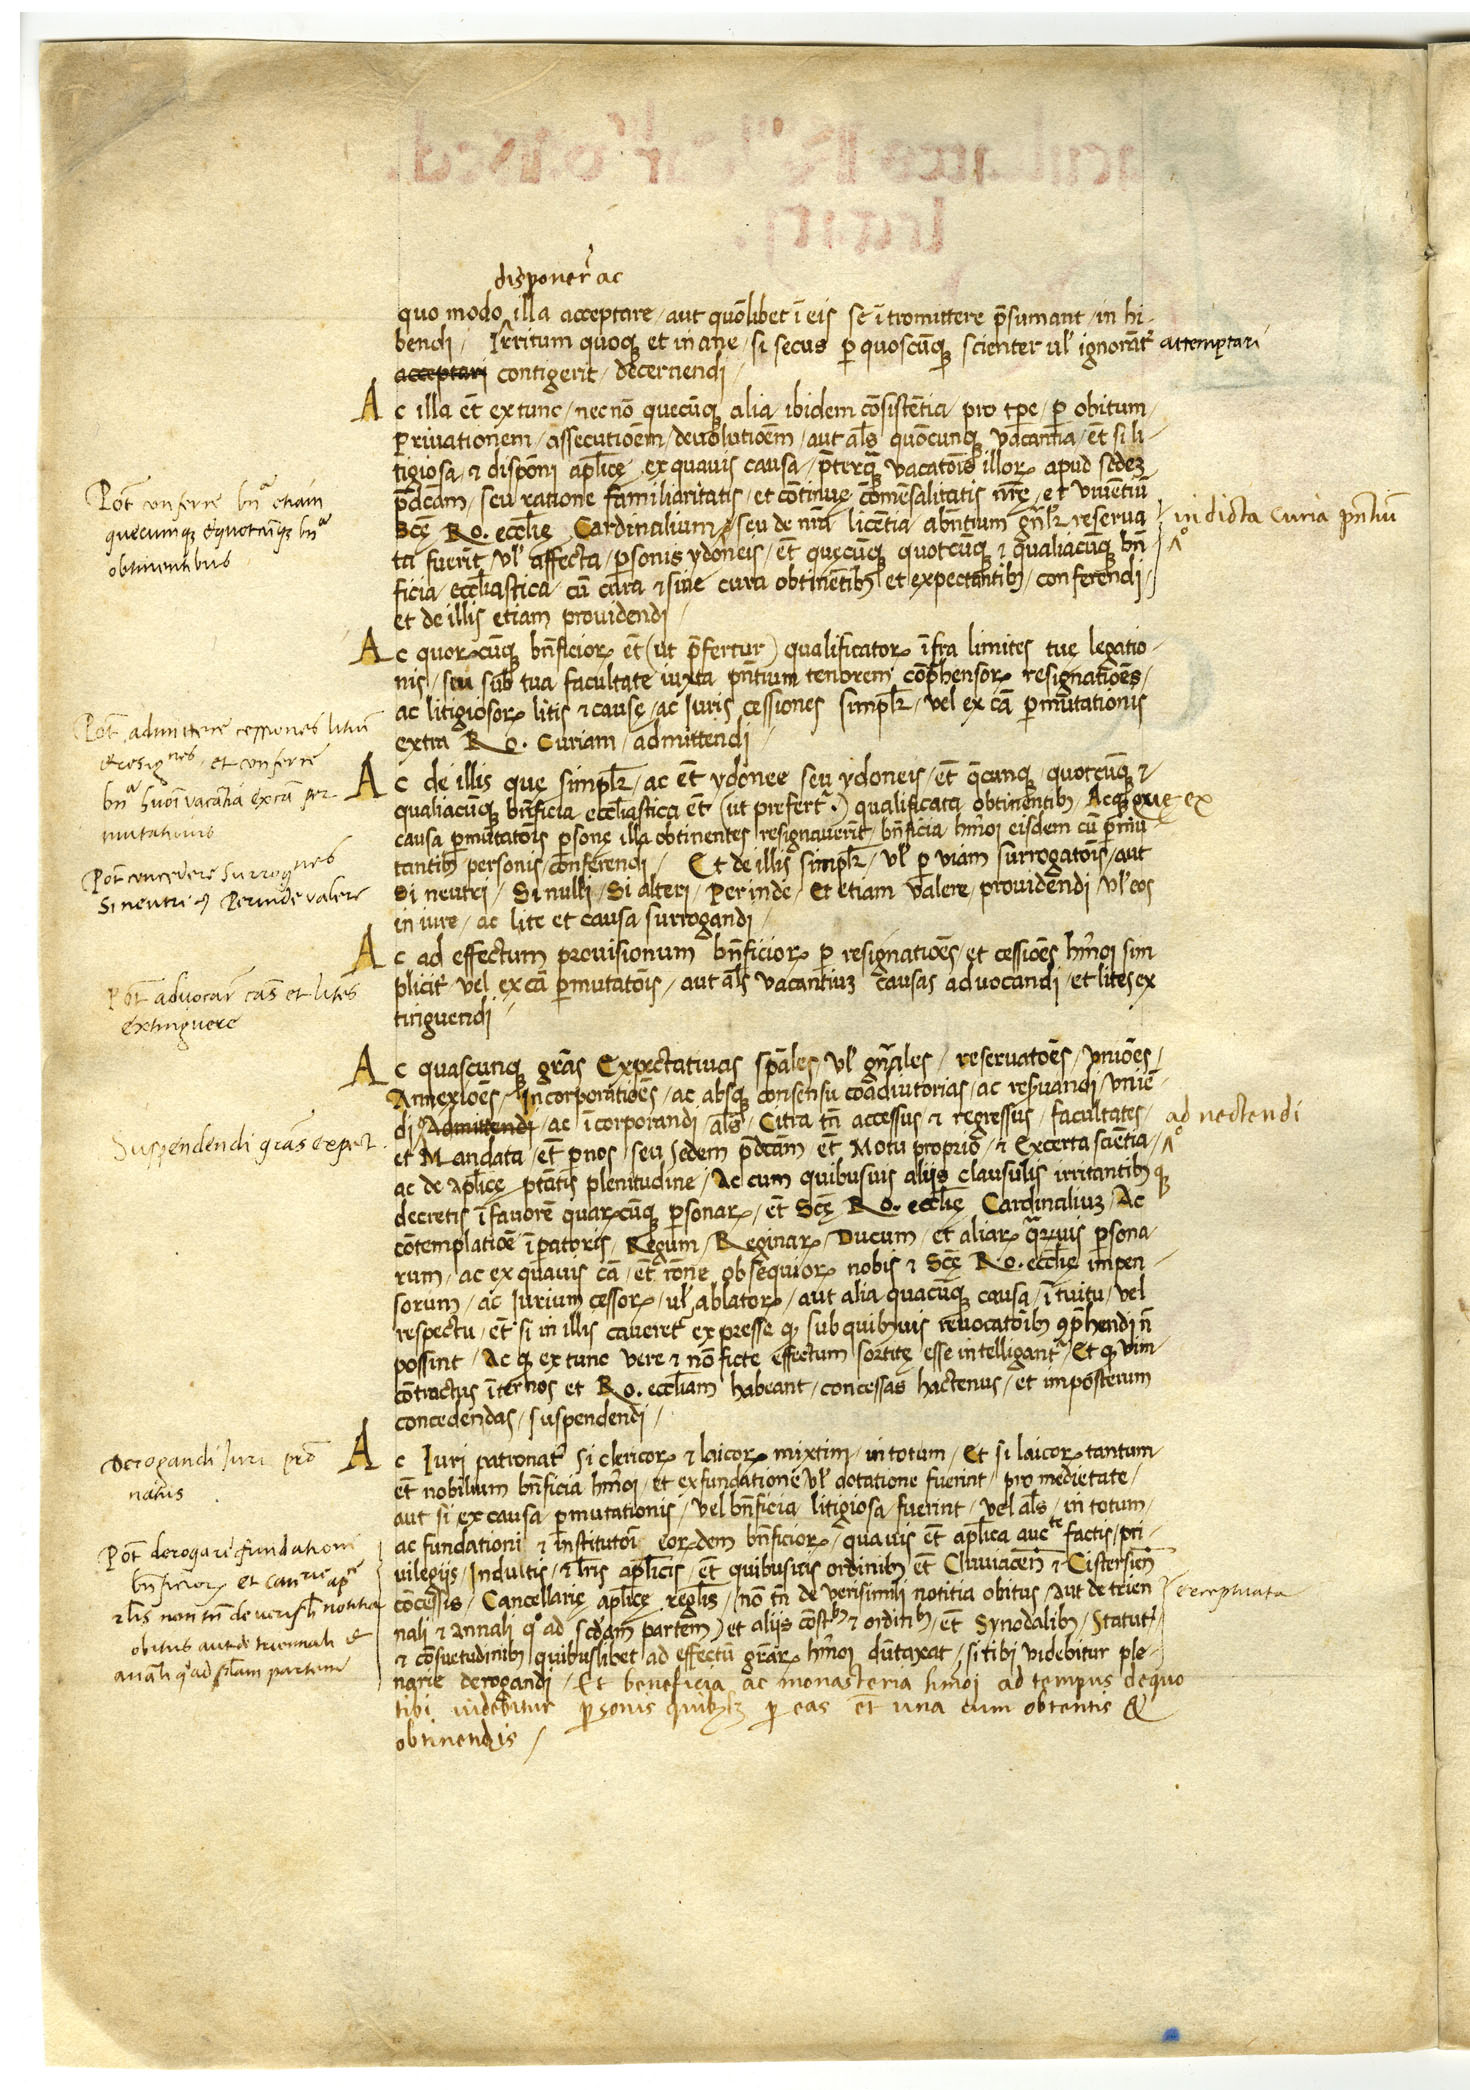 disponer̃ ac
quo modo illa acceptare / aut quōlibet ī eis se ītromittere p̄sumant / in hi-
bendi / Irritum quoq̨ et inane / si secus p̱ quoscūq̨ scienter ul' ignorāt' attemptari
acceptari contigerit / decernendi /
Ac illa et̄ ex tunc / nec nō quecūq̨ alia ibidem cōsistētia / pro tp̄e / p̱ obitum /
Privationem / assecutiōem / devolutiōem / aut al̄s quōcunq̨ vacantia / et̄ si li-
tigiosa / ⁊ disponi ap̄licę ex quavis causa / p̄terq̄ vacatōis illoꝝ apud sedeʒ
p̄dcām / seu ratione familiaritatis / et continuę comēsalitatis nr̄ę / et viventiū
Scę Ro. eccl̄ię Cardinalium / seu de nr̄a licētia abn̄tium gn̄lr̄ reserva
in dicta Curia pn̄tiū
ta fuerīt / ul' affecta / p̱sonis ydoneis / et̄ quęcūq̨ quotcūq̨ ⁊ qualiacūq̨ bn̄
ficia eccl̄iastica cū cura ⁊ sine cura obtinētibꝫ et expectantibꝫ / conferendi /
et de illis etiam providendi /
Pot̄ conferre bn̄ᵃ etiam
quęcumq̨ ⁊ quotcūq̨ bn̄ᵃ
obtinentibus
Ac quoꝝcūq̨ bn̄ficioꝝ et̄ (ut p̄fertur) qualificatoꝝ īfra limites tuę legatio-
nis / seu sub tua facultate iuxta pn̄tium tenorem cōp̱hensoꝝ resignatiōes /
ac litigiosoꝝ litis ⁊ causę / ac Juris cessiones simpl̄r / vel ex cā p̱mutationis
extra Ro. Curiam / admittendi /
Pot̄ admittere cessiones litiū
⁊ resigⁿᵉˢ / et conferre
bn̄ᵃ hmōi vacantia ex cā per
mutationis
Ac de illis quę simpl̄r / ac et̄ ydonee seu ydoneis / et̄ q̄cunq̨ / quotcūq̨ ⁊
qualiacūq̨ bn̄ficia eccl̄iastica et̄ (ut prefert'.) qualificata obtinentibꝫ / Acq̨ quę ex
causa p̱mutatōis p̱sonę illa obtinentes resignauerīt / bn̄ficia hmōi eisdem cū p̱mu
tantibꝫ personis / conferendi / Et de illis simpl̄r / ul' p̱ viam surrogatōis / aut
Si neutri / Si nulli / Si alteri / Per inde / Et etiam valere / providendi / ul' eos
in iure / ac lite et causa surrogandi /
Pot̄ concedere surrogⁿᵉˢ
Si neutri ⁊ Perinde valere
Ac ad effectum provisionum bn̄ficioꝝ p̱ resignatiōes / et cessiōes hmōi sim
plicit' vel ex cā p̱mutatōis / aut al̄s vacantiuʒ causas advocandi / et lites ex
tinguendi /
Pot̄ advocar̄ cās et lites
extinguere
Ac quascunq̨ gr̄as Expectativas sp̄ales / ul' gn̄ales / reservatōes / Vniōes /
Annexiōes / Incorporatiōes / ac absq̨ consensu coadiutorias / ac res̱vandi / Vniē-
di / Admittendi / ac īcorporandi / al̄s / Citra tn̄ accessus ⁊ regressus / facultates / adnectendi
et Mandata / et̄ p̱ nos / seu Sedem p̄dcām / et̄ Motu proprio / ⁊ Ex certa scientia /
ac de Ap̄licę pt̄atis plenitudine / Ac cum quibusvis aliis clausulis irritantibꝫ q̨
decretis ī favorē quaꝝcūq̨ p̱sonaꝝ / et̄ Scę Ro. eccl̄ię Cardinaliuʒ / Ac
cōtemplatiōe īp̱atoris / Regum / Reginaꝝ / Ducum / et aliaꝝ q̄ꝝvis p̱sona-
rum / ac ex quavis cā / et̄ rōne obsequioꝝ nobis ⁊ Scę Ro. eccl̄ię impen-
sorum / ac Jurium cessoꝝ / ul' ablatoꝝ / aut alia quacūq̨ causa / ītuitu / vel
respectu / et̄ si in illis caveret' expresse ꝙ sub quibusvis revocatōibꝫ ꝯp̱hendi n̄
possint / Ac ꝙ ex tunc vere ⁊ nō ficte effectum sortitę esse intelligant' / Et ꝙ vim
cōtractus īter nos et Ro. eccl̄iam habeant / concessas hactenus / et imposterum
concedendas / suspendendi /
Suspendendi gr̄as expect.
Ac Juri patronat' si clericoꝝ ⁊ laicoꝝ mixtim / in totum / Et si laicoꝝ tantum
et̄ nobilium bn̄ficia hmōi / et ex fundatione ul' dotatione fuerint / pro medietate /
aut si ex causa p̱mutationis / vel bn̄ficia litigiosa fuerint / vel al̄s / in totum /
ac fundationi ⁊ īnstitutōi eoꝝdem bn̄ficioꝝ / quavis et̄ ap̄lica aucᵗᵉ factis / pri-
vilegijs / Indultis / ⁊ lr̄is ap̄licis / et̄ quibusvis ordinibꝫ et̄ Cluniaceñ ⁊ Cistersieñ
cōcessis / Cancellarię ap̄licę regl̄is / (nō tn̄ de verisimili notitia obitus / aut de trien exceptuata
nali ⁊ annali q̊ ad scdām partem) et aliis cōstⁱᵇꝫ ⁊ ordinⁱᵇꝫ / et̄ Synodalibꝫ / Statut' /
⁊ cōsuetudinibꝫ quibuslibet ad effectū gr̄aꝝ hmōi dūtaxat / si tibi videbitur ple-
narie derogandi / Et beneficia ac monasteria hmōi ad tempus de quo
tibi videbitur p̱sonis quibꝫlʒ p̱ eas et̄ una cum obtentis &
obtinendis /
Derogandi Juri pro
natus
Pot̄ derogare fundationi
bn̄ficioꝝ et Canʳⁱᵉ apᶜᵉ
rl̄is non tn̄ de verisil̄i notitia
obitus aut de triennali &
annali q̊ ad scdām partem